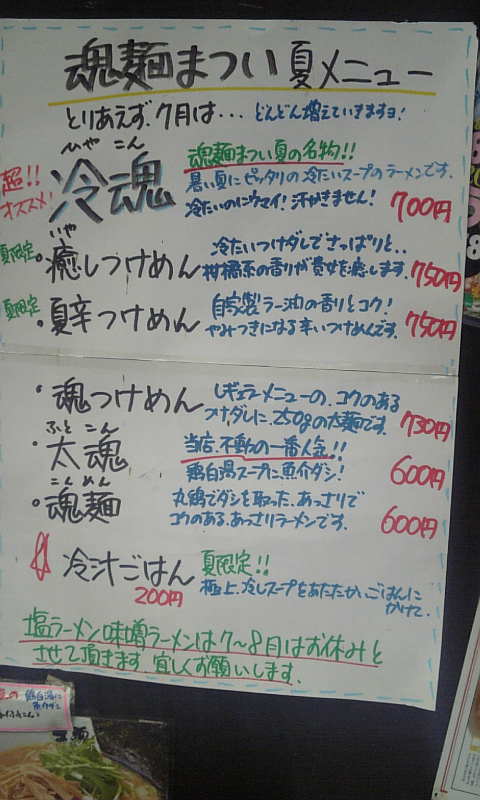 魂麺まつい夏メニュー
とりあえず、7月は… どんどん増えていきますヨ!
超!!
オススメ!
ひや こん
冷魂
魂麺まつい夏の名物!!
暑い夏にピッタリの冷たいスープのラーメンです。
冷たいのにウマイ!汗かきません!
700円
夏限定
いや
癒しつけめん
冷たいつけダレでさっぱりと、
柑橘系の香りが貴女を癒します。
750円
夏限定
夏辛つけめん
自家製ラー油の香りとコク!
やみつきになる辛いつけめんです。
750円
魂つけめん
レギュラーメニューの、コクのある
つけダレに、250gの太麺です。
730円
ふと こん
太魂
当店、不動の一番人気!!
鶏白湯スープに魚介ダシ!
600円
こんめん
魂麺
丸鶏でダシを取った、あっさりで
コクのある、あっさりラーメンです。
600円
冷汁ごはん
200円
夏限定!!
極上、冷しスープをあたたかいごはんに
かけて。
塩ラーメン味噌ラーメンは7~8月はお休みと
させて頂きます。宜しくお願いします。
鶏白湯に
魚介ダシ